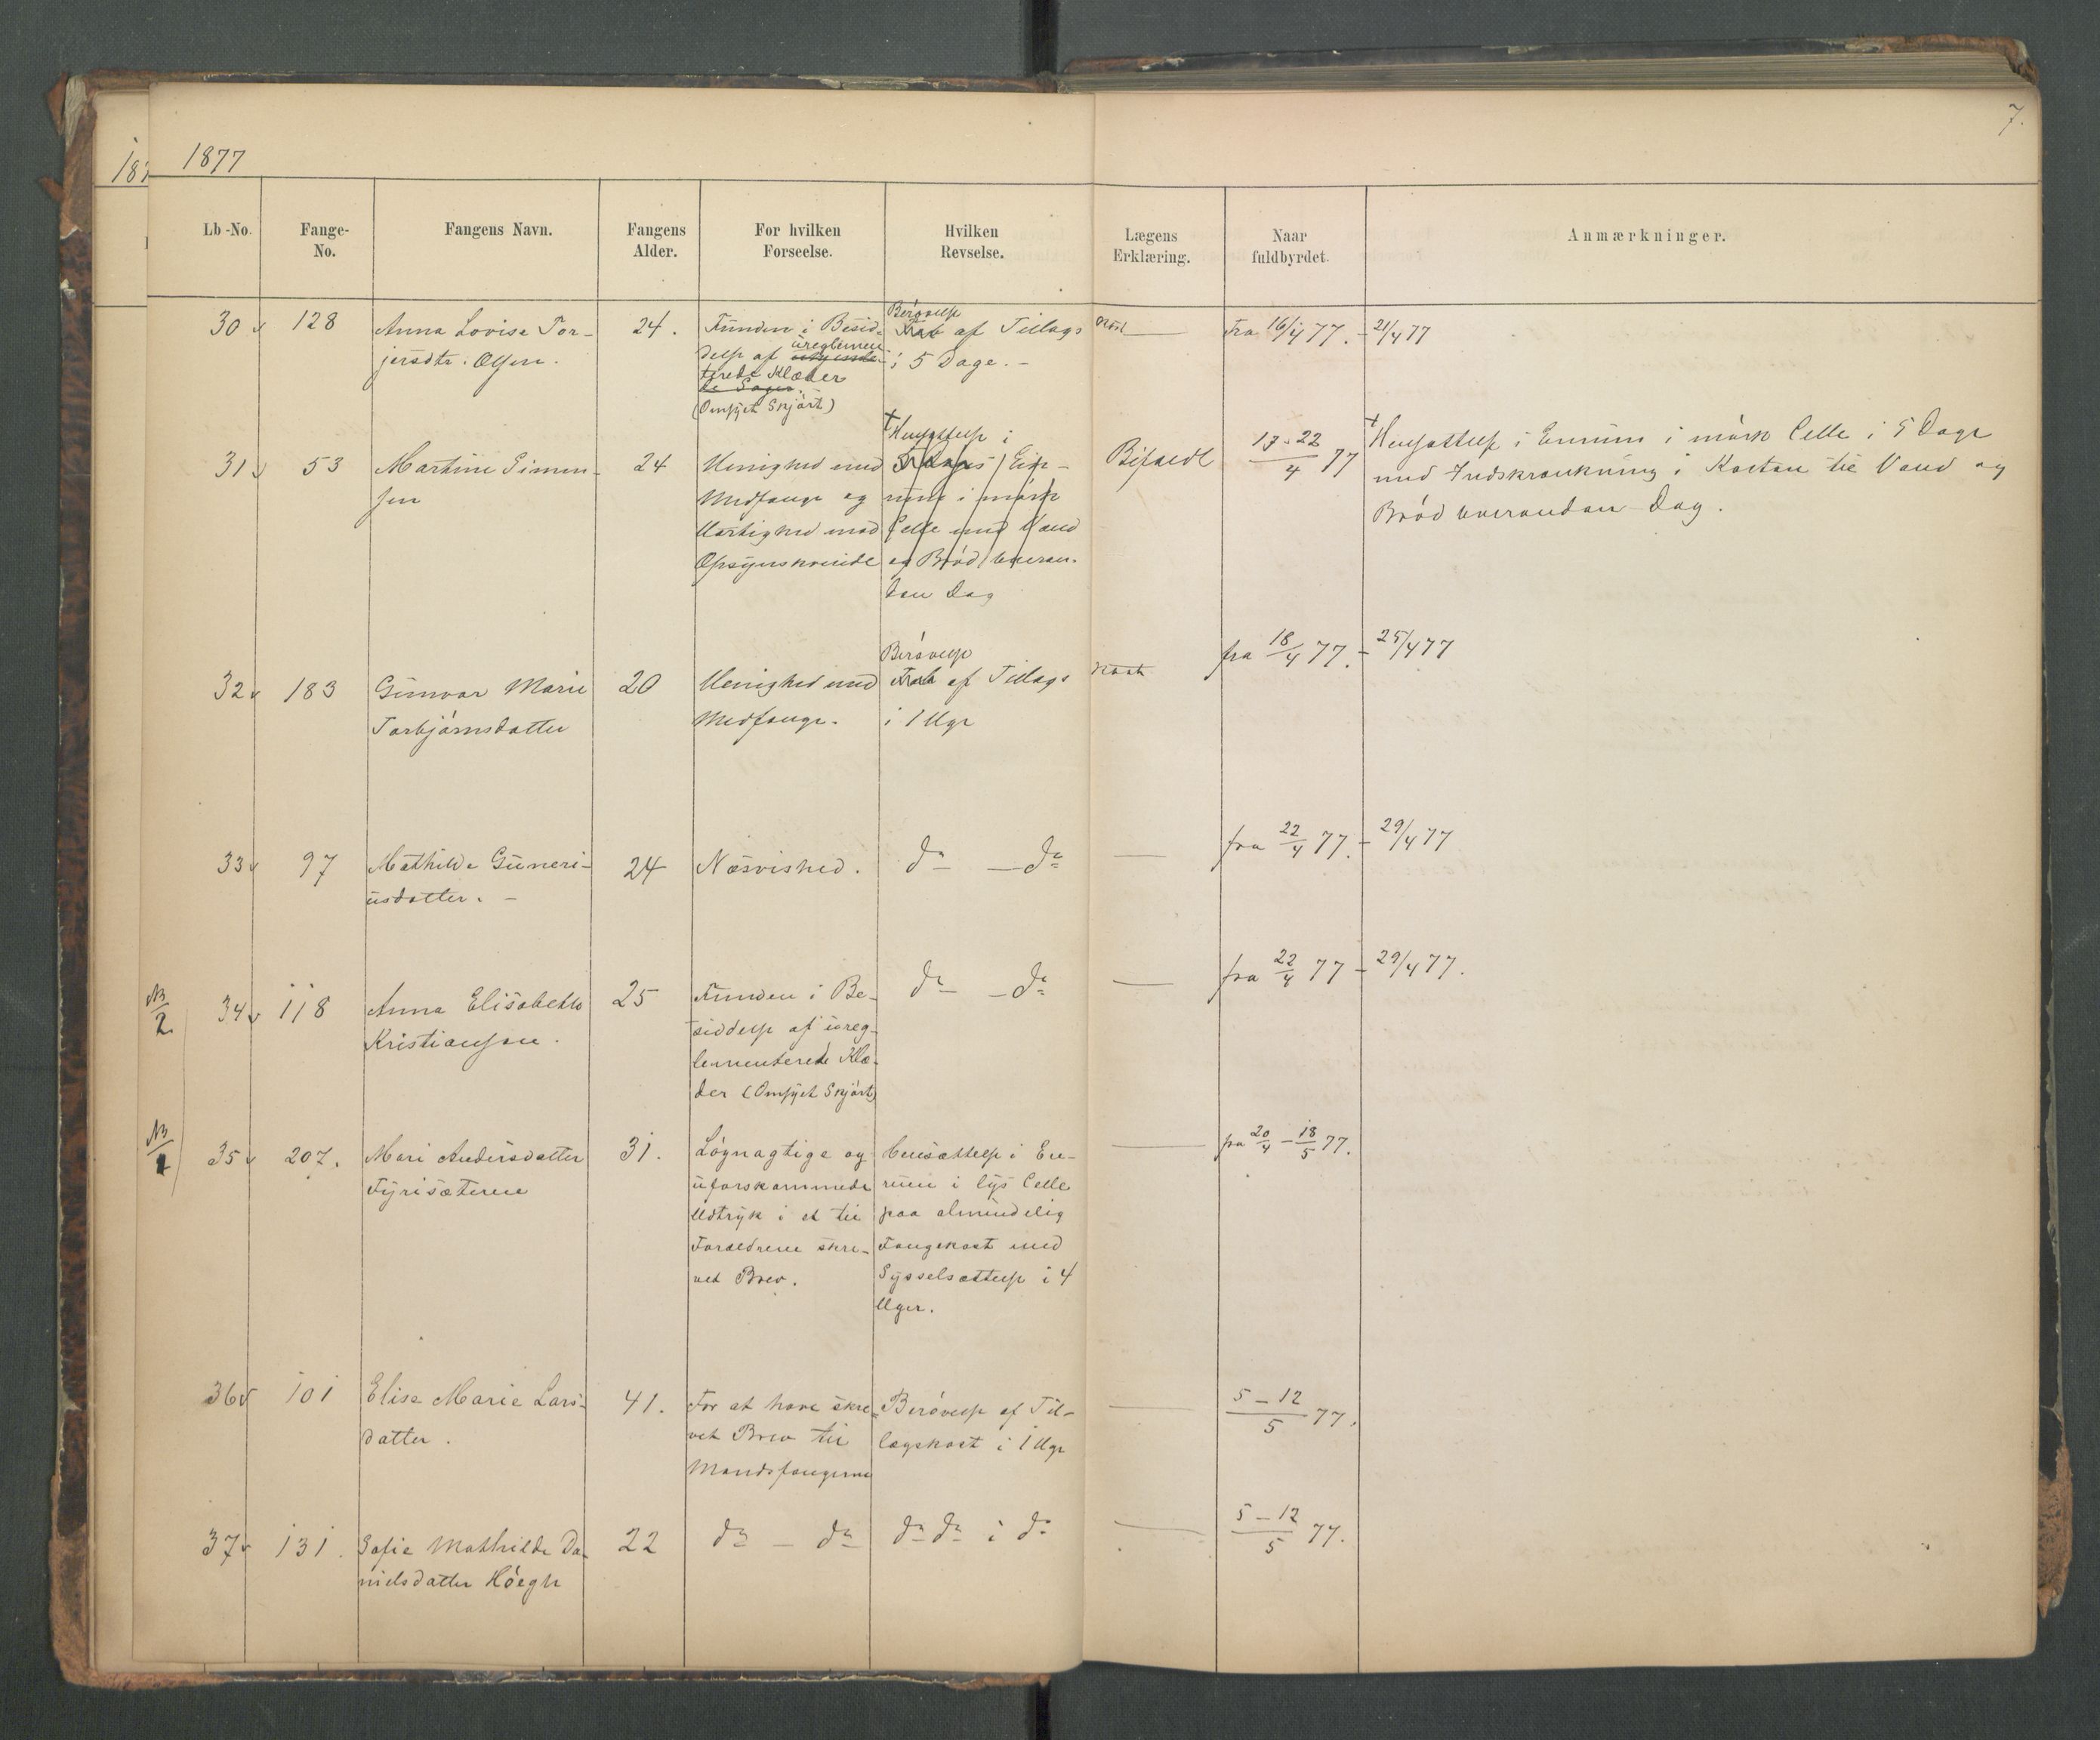 187
1877
7.
Lb-No. Fange-No. Fangens Navn. Fangens Alder. For hvilken Forseelse. Hvilken Revselse. Lægens Erklæring. Naar fuldbyrdet. Anmærkninger.
30 v 128 Anna Lovise Tor-
jersdtr. Olsen.
24.
Funden i Besid-
delse af ureglemen
terede Klæder
de Sager.
(Omsyet Skjørt)
Berøvelse
Tab af Tillags kost
i 5 Dage. -
Fra 16/4 77. - 21/4 77
31 v 53 Martine Simen-
sen
24
Uenighed med
Medfange og
Uartighed mod
Opsynskvinde
+ Hensættelse i
5 Dages Ene-
rum i mørk
Celle med Vand
og Brød hveran-
den Dag
Bifaldt
17-22/4 77
+ Hensættelse i Enrum i mørk Celle i 5 Dage
med Indskrænkning i Kosten til Vand og
Brød hverandan Dag.
32 v 183 Gunvor Marie
Torbjørnsdatter
20
Uenighed med
Medfange.
Berøvelse
Tab af Tillags kost
i 1 Uge
fra 18/4 77. - 25/4 77
33 v 97 Mathilde Guneri-
usdatter. -
24
Næsvished.
do - do
fra 22/4 77. - 29/4 77
NB 2
34 v 118 Anna Elisabeth
Kristiansen.
25
Funden i Be-
siddelse af ureg-
lementerede Klæ-
der (Omsyet Skjørt)
do - do
fra 22/4 77 - 29/4 77.
NB 1
35 v 207. Mari Andersdatter
Fyrisæteren
31.
Løgnagtige og
uforskammede
Udtryk i et til
Forældrene skre-
vet Brev.
Hensættelse i En-
rum i lys Celle
paa almindelig
Fangekost med
Sysselsættelse i 4
Uger.
fra 20/4 - 18/5 77.
36 v 101 Elise Marie Lars-
datter.
41.
For at have skre-
vet Brev til
Mandsfangerne
Berøvelse af Til-
lagskost i 1 Uge
5-12/5 77.
37 v 131. Sofie Mathilde Da-
nielsdatter Høegh
22
do - do
do do i do
5-12/5 77.